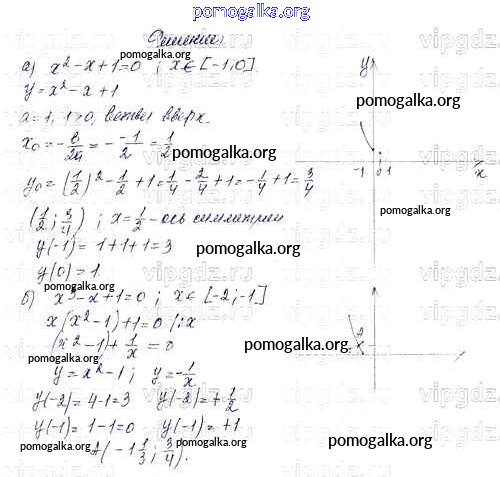 pomogalka.org
Решение.
а) x² - x + 1 = 0 ; x ∈ [-1; 0].
y = x² - x + 1
a = 1, 1 > 0, ветви вверх.
x₀ = -b/2a = - -1/2 = 1/2
y₀ = (1/2)² - 1/2 + 1 = 1/4 - 2/4 + 1 = -1/4 + 1 = 3/4
(1/2; 3/4) ; x = 1/2 - ось симметрии
y(-1) = 1 + 1 + 1 = 3
y(0) = 1.
б) x³ - x + 1 = 0 ; x ∈ [-2; -1]
x(x² - 1) + 1 = 0 /: x
(x² - 1) + 1/x = 0
y = x² - 1 ; y = -1/x
y(-2) = 4 - 1 = 3 y(-2) = + 1/2
y(-1) = 1 - 1 = 0 y(-1) = +1
A(-1 1/3; 3/4).
y
-1 0 1 x
A
pomogalka.org
pomogalka.org
pomogalka.org
pomogalka.org
pomogalka.org
pomogalka.org
pomogalka.org
pomogalka.org
pomogalka.org
pomogalka.org
pomogalka.org